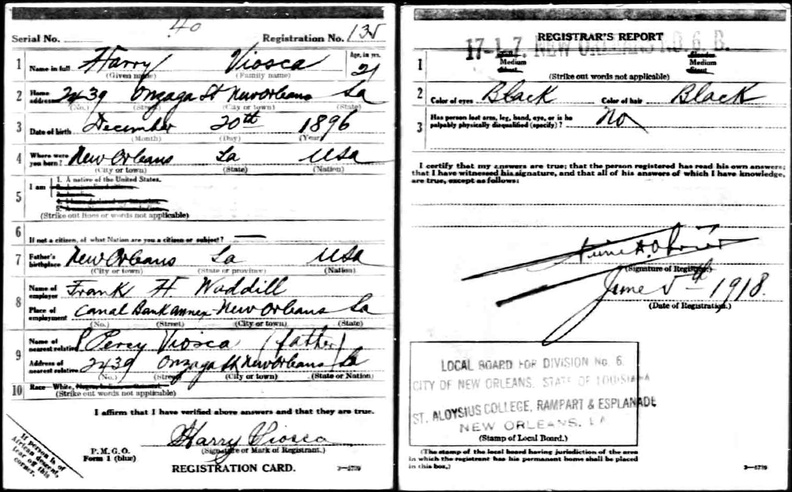 40
Serial No. Registration No. 135
1 Name in full Harry Viosca Age, in yrs. 21
(Given name) (Family name)
2 Home address 2439 Onzaga St New Orleans La
(No.) (Street) (City or town) (State)
3 Date of birth December 20th 1896
(Month) (Day) (Year)
4 Where were you born? New Orleans La USA
(City or town) (State) (Nation)
5 I am 1. A native of the United States.
(Strike out lines or words not applicable)
6 If not a citizen, of what Nation are you a citizen or subject? —
7 Father's birthplace New Orleans La USA
(City or town) (State or province) (Nation)
8 Name of employer Frank H Waddill
Place of employment Canal Bank Annex New Orleans La
(No.) (Street) (City or town) (State)
9 Name of nearest relative P Percy Viosca (father)
Address of nearest relative 2439 Onzaga St New Orleans La
(No.) (Street) (City or town) (State or Nation)
10 Race—White,
(Strike out words not applicable)
I affirm that I have verified above answers and that they are true.
P.M.G.O. Form 1 (blue)
Harry Viosca
(Signature or Mark of Registrant.)
If person is of African descent, tear off this corner.
REGISTRATION CARD.
REGISTRAR'S REPORT
17-1-7. NEW ORLEANS
1 Medium Medium
(Strike out words not applicable)
2 Color of eyes Black Color of hair Black
3 Has person lost arm, leg, hand, eye, or is he palpably physically disqualified (specify)? No
I certify that my answers are true; that the person registered has read his own answers;
that I have witnessed his signature, and that all of his answers of which I have knowledge,
are true, except as follows:
(Signature of Registrar)
June 5th 1918.
(Date of Registration.)
LOCAL BOARD FOR DIVISION No. 6.
CITY OF NEW ORLEANS, STATE OF LOUISIANA
ST. ALOYSIUS COLLEGE, RAMPART & ESPLANADE
NEW ORLEANS, LA
(Stamp of Local Board.)
(The stamp of the local board having jurisdiction of the area
in which the registrant has his permanent home shall be placed
in this box.)